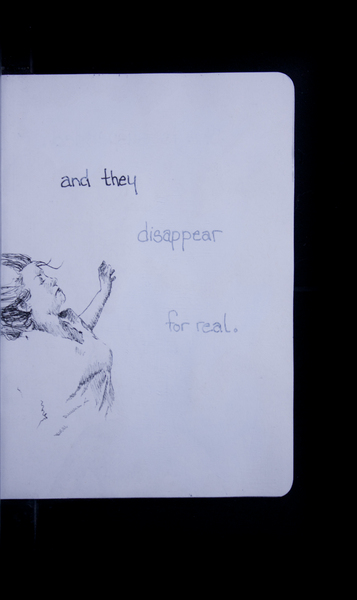 and they
disappear
for real.